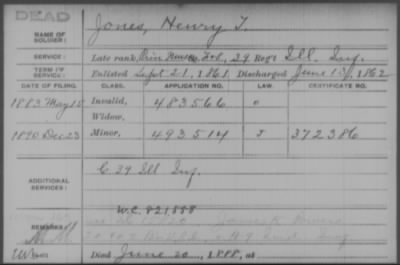 DEAD
NAME OF SOLDIER: Jones, Henry T.
SERVICE: Late rank, F&S, 29 Reg't Ill. Inf.
TERM OF SERVICE: Enlisted Sept 21, 1861 Discharged June 1862
DATE OF FILING. CLASS. APPLICATION NO. LAW. CERTIFICATE NO.
1883 May 15 Invalid, 483566
Widow,
1890 Dec 23 Minor, 493514 J 372386
ADDITIONAL SERVICES: C 29 Ill Inf.
W.C. 821888
REMARKS:
Died June 20, 1888, at